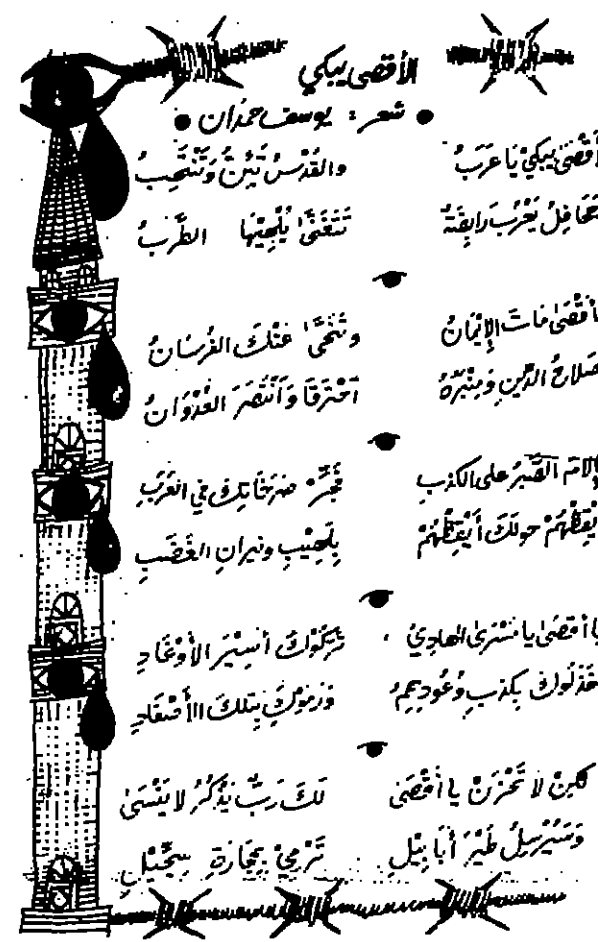 الأقصى يبكي
● شعر : يوسف حمدان ●
أقْصَى يبكيْ يَا عَرَبُ والقُدْسُ تَئِنُّ وَتَنْتَحِبُ
تَتَغَنَّى يُلْهِيْهَا الطَّرَبُ
أقْصَى مَاتَ الإِيْمَانُ وتَنَحَّى عَنْكَ الفُرْسَانُ
صَلاحُ الدِّينِ وَمِنْبَرُهُ احْتَرَقَا وَانْتَصَرَ العُدْوَانُ
الصَّبْرُ على الكذبِ فَجِّرْ صَرَخَاتِكَ في العَرَبِ
حولَكَ أَيْقِظْهُمْ بِلَهِيْبِ ونيرانِ الغَضَبِ
يا أقصَىْ يا مَسْرَىْ الهاديْ تَرَكُوْكَ أَسِيْرَ الأَوْغَادِ
خَذَلُوكَ بِكَذِبِ وُعُودِهِمُ وَرَمَوْكَ بِتِلكَ الأَصْفَادِ
لكِنْ لا تَحْزَنْ يا أقْصَى لَكَ رَبٌّ يَذْكُرُ لا يَنْسَىْ
وَسَيُرْسِلُ طَيْرَ أَبَابِيْلِ تَرْمِيْ بِحِجَارَةِ سِجِّيْلِ